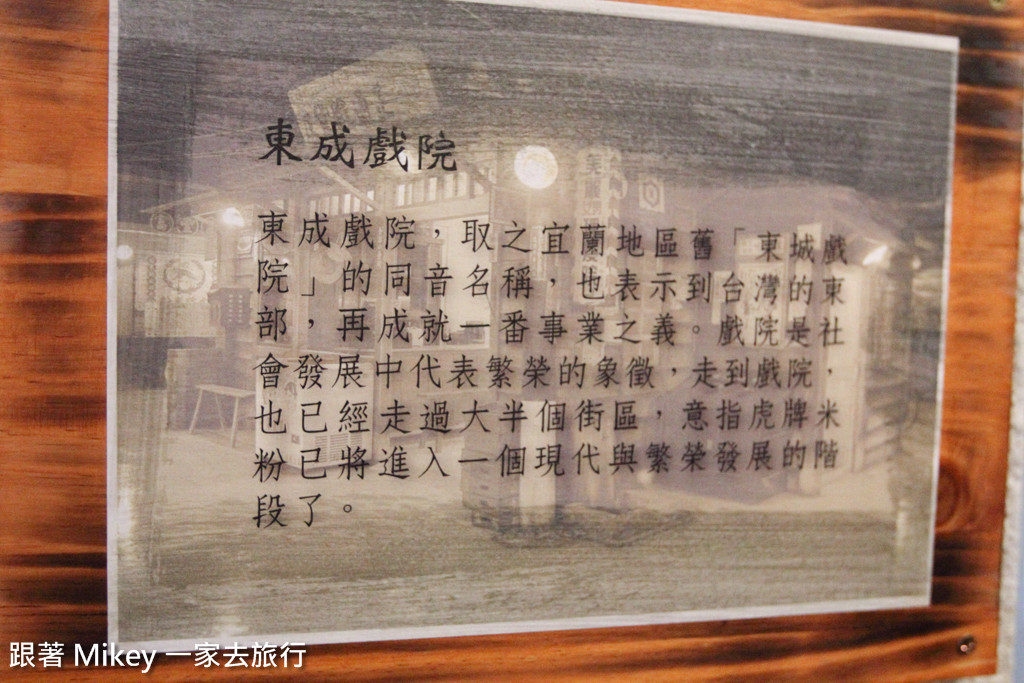 東成戲院
東成戲院，取之宜蘭地區舊「東城戲
院」的同音名稱，也表示到台灣的東
部，再成就一番事業之義。戲院是社
會發展中代表繁榮的象徵，走到戲院，
也已經走過大半個街區，意指虎牌米
粉已將進入一個現代與繁榮發展的階
段了。
跟著 Mikey 一家去旅行